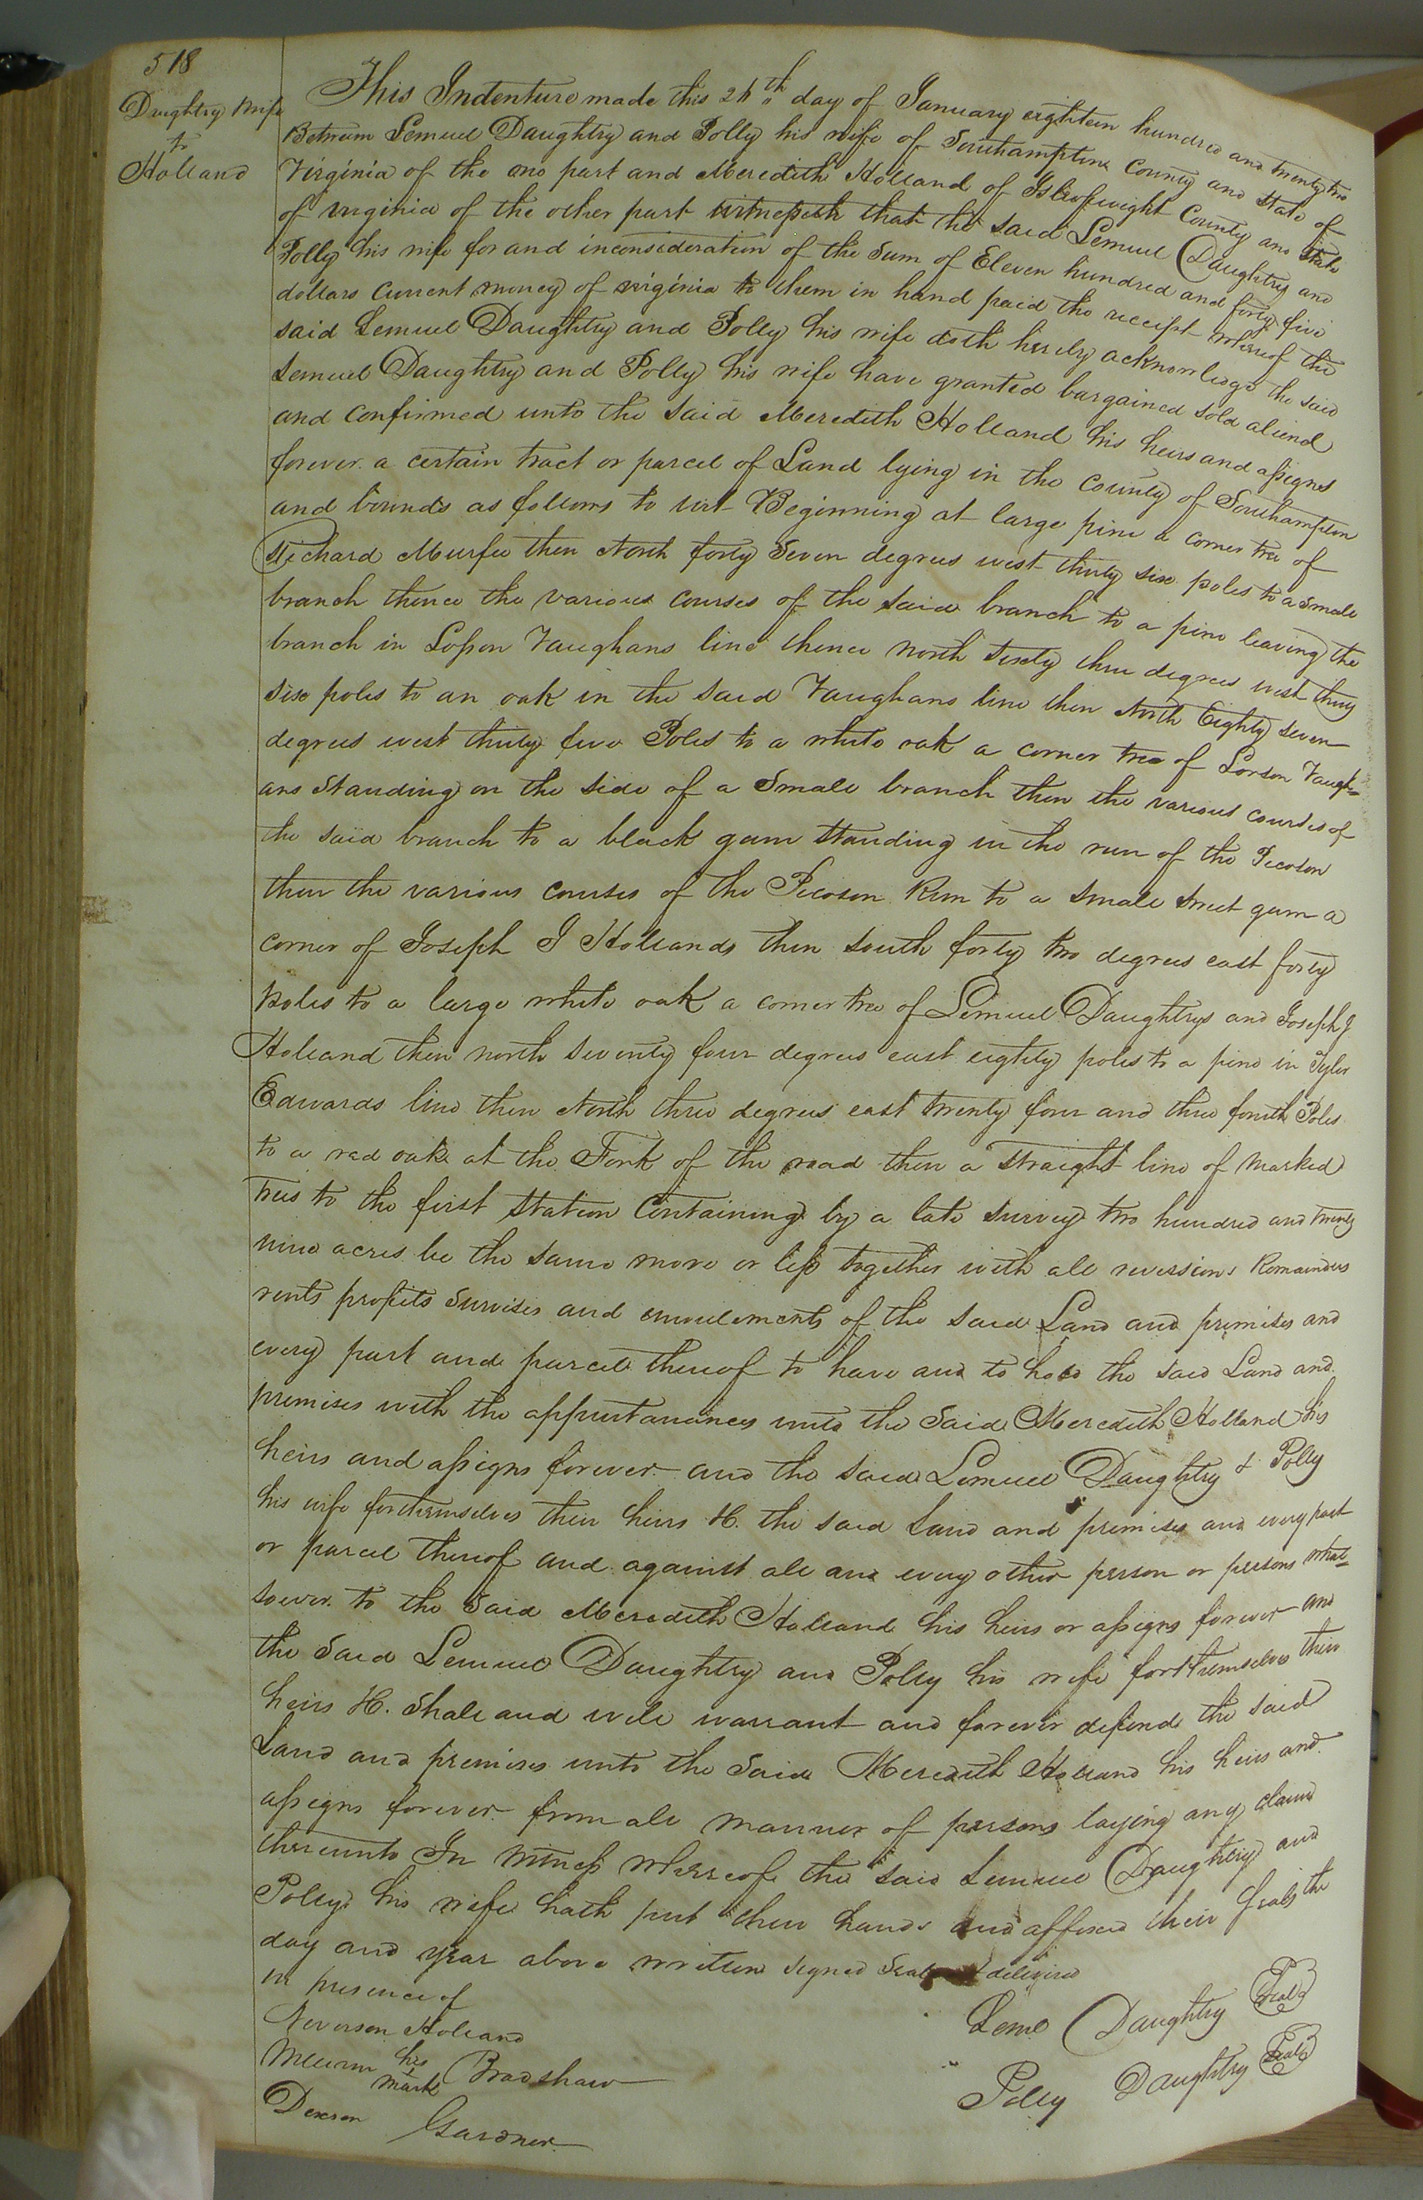 518
Daughtry & wife
to
Holland
This Indenture made this 26th day of January eighteen hundred and twenty two
Between Lemuel Daughtry and Polly his wife of Southampton County and State of
Virginia of the one part and Meredith Holland of Isleofwight County and State
of virginia of the other part witnesseth that the said Lemuel Daughtry and
Polly his wife for and inconsideration of the Sum of Eleven hundred and forty five
dollars current money of virginia to them in hand paid the receipt whereof the
said Lemuel Daughtry and Polly his wife doth hereby acknowledge the said
Lemuel Daughtry and Polly his wife have granted bargained sold aliend
and confirmed unto the said Meredith Holland his heirs and assigns
forever a certain tract or parcel of Land lying in the county of Southampton
and bounds as follows to wit Beginning at large pine a corner tree of
Richard Murfee then North forty Seven degrees west thirty six poles to a small
branch thence the various courses of the said branch to a pine leaving the
branch in Losson Vaughans line thence north sixty three degrees west thirty
six poles to an oak in the said Vaughans line then North Eighty seven
degrees west thirty five Poles to a white oak a corner tree of Losson Vaugh=
ans Standing on the side of a Small branch then the various courses of
the said branch to a black gum standing in the run of the Pecoson
then the various courses of the Pecoson Run to a small sweet gum a
corner of Joseph J Hollands then south forty two degrees east forty
poles to a large white oak a corner tree of Lemuel Daughtrys and Joseph J.
Holland then north seventy four degrees east eighty poles to a pine in Tyler
Edwards line then North three degrees east twenty four and three fourth Poles
to a red oak at the Fork of the road then a straight line of marked
trees to the first station Containing by a late survey two hundred and twenty
nine acres be the same more or less together with all reversions Remainders
rents profits Survises and emoulements of the said Land and premises and
every part and parcel thereof to have and to hold the said Land and
premises with the appurtanances unto the Said Meredith Holland his
heirs and assigns forever and the said Lemuel Daughtry & Polly
his wife forthemselves their heirs &C. the said Land and premises and every part
or parcel thereof and against all and every other person or persons what=
soever to the Said Meredith Holland his heirs or assigns forever and
the Said Lemuel Daughtry and Polly his wife for themselves their
heirs &C. Shall and will warrant and forever defend the said
Land and premises unto the Said Meredith Holland his heirs and
assigns forever from all manner of persons laying any claim
thereunto In Witness whereof the said Lemuel Daughtry and
Polly his wife hath put their hands and affixed their Seals the
day and year above written signed Seal & deliverd
in presence of
Neverson Holland
his Bradshaw
mark
Dexson Gardner
Leml Daughtry Seal
Polly Daughtry Seal